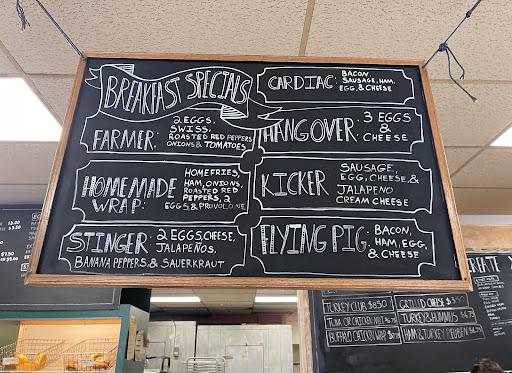 BREAKFAST SPECIALS
FARMER: 2 EGGS,
SWISS,
ROASTED RED PEPPERS
ONIONS & TOMATOES
HOMEMADE WRAP: HOMEFRIES,
HAM, ONIONS,
ROASTED RED
PEPPERS, 2
EGGS & PROVOLONE
STINGER: 2 EGGS, CHEESE,
JALAPEÑOS,
BANANA PEPPERS, & SAUERKRAUT
CARDIAC: BACON,
SAUSAGE, HAM,
EGG, & CHEESE
HANGOVER: 3 EGGS
& CHEESE
KICKER: SAUSAGE,
EGG, CHEESE, &
JALAPENO
CREAM CHEESE
FLYING PIG: BACON,
HAM, EGG,
& CHEESE
TURKEY CLUB $8.50
GRILLED CHEESE $3.50
TURKEY & HUMMUS
BUFFALO CHICKEN WRAP
HAM & TURKEY REUBEN